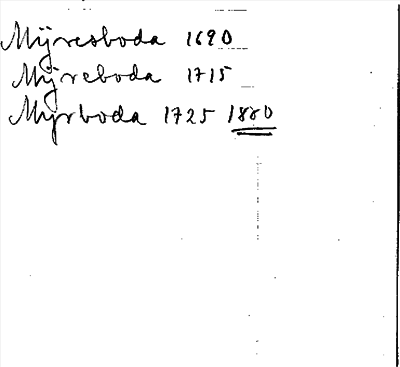 Mÿresboda 1690
Mÿreboda 1715
Myrboda 1725 1880